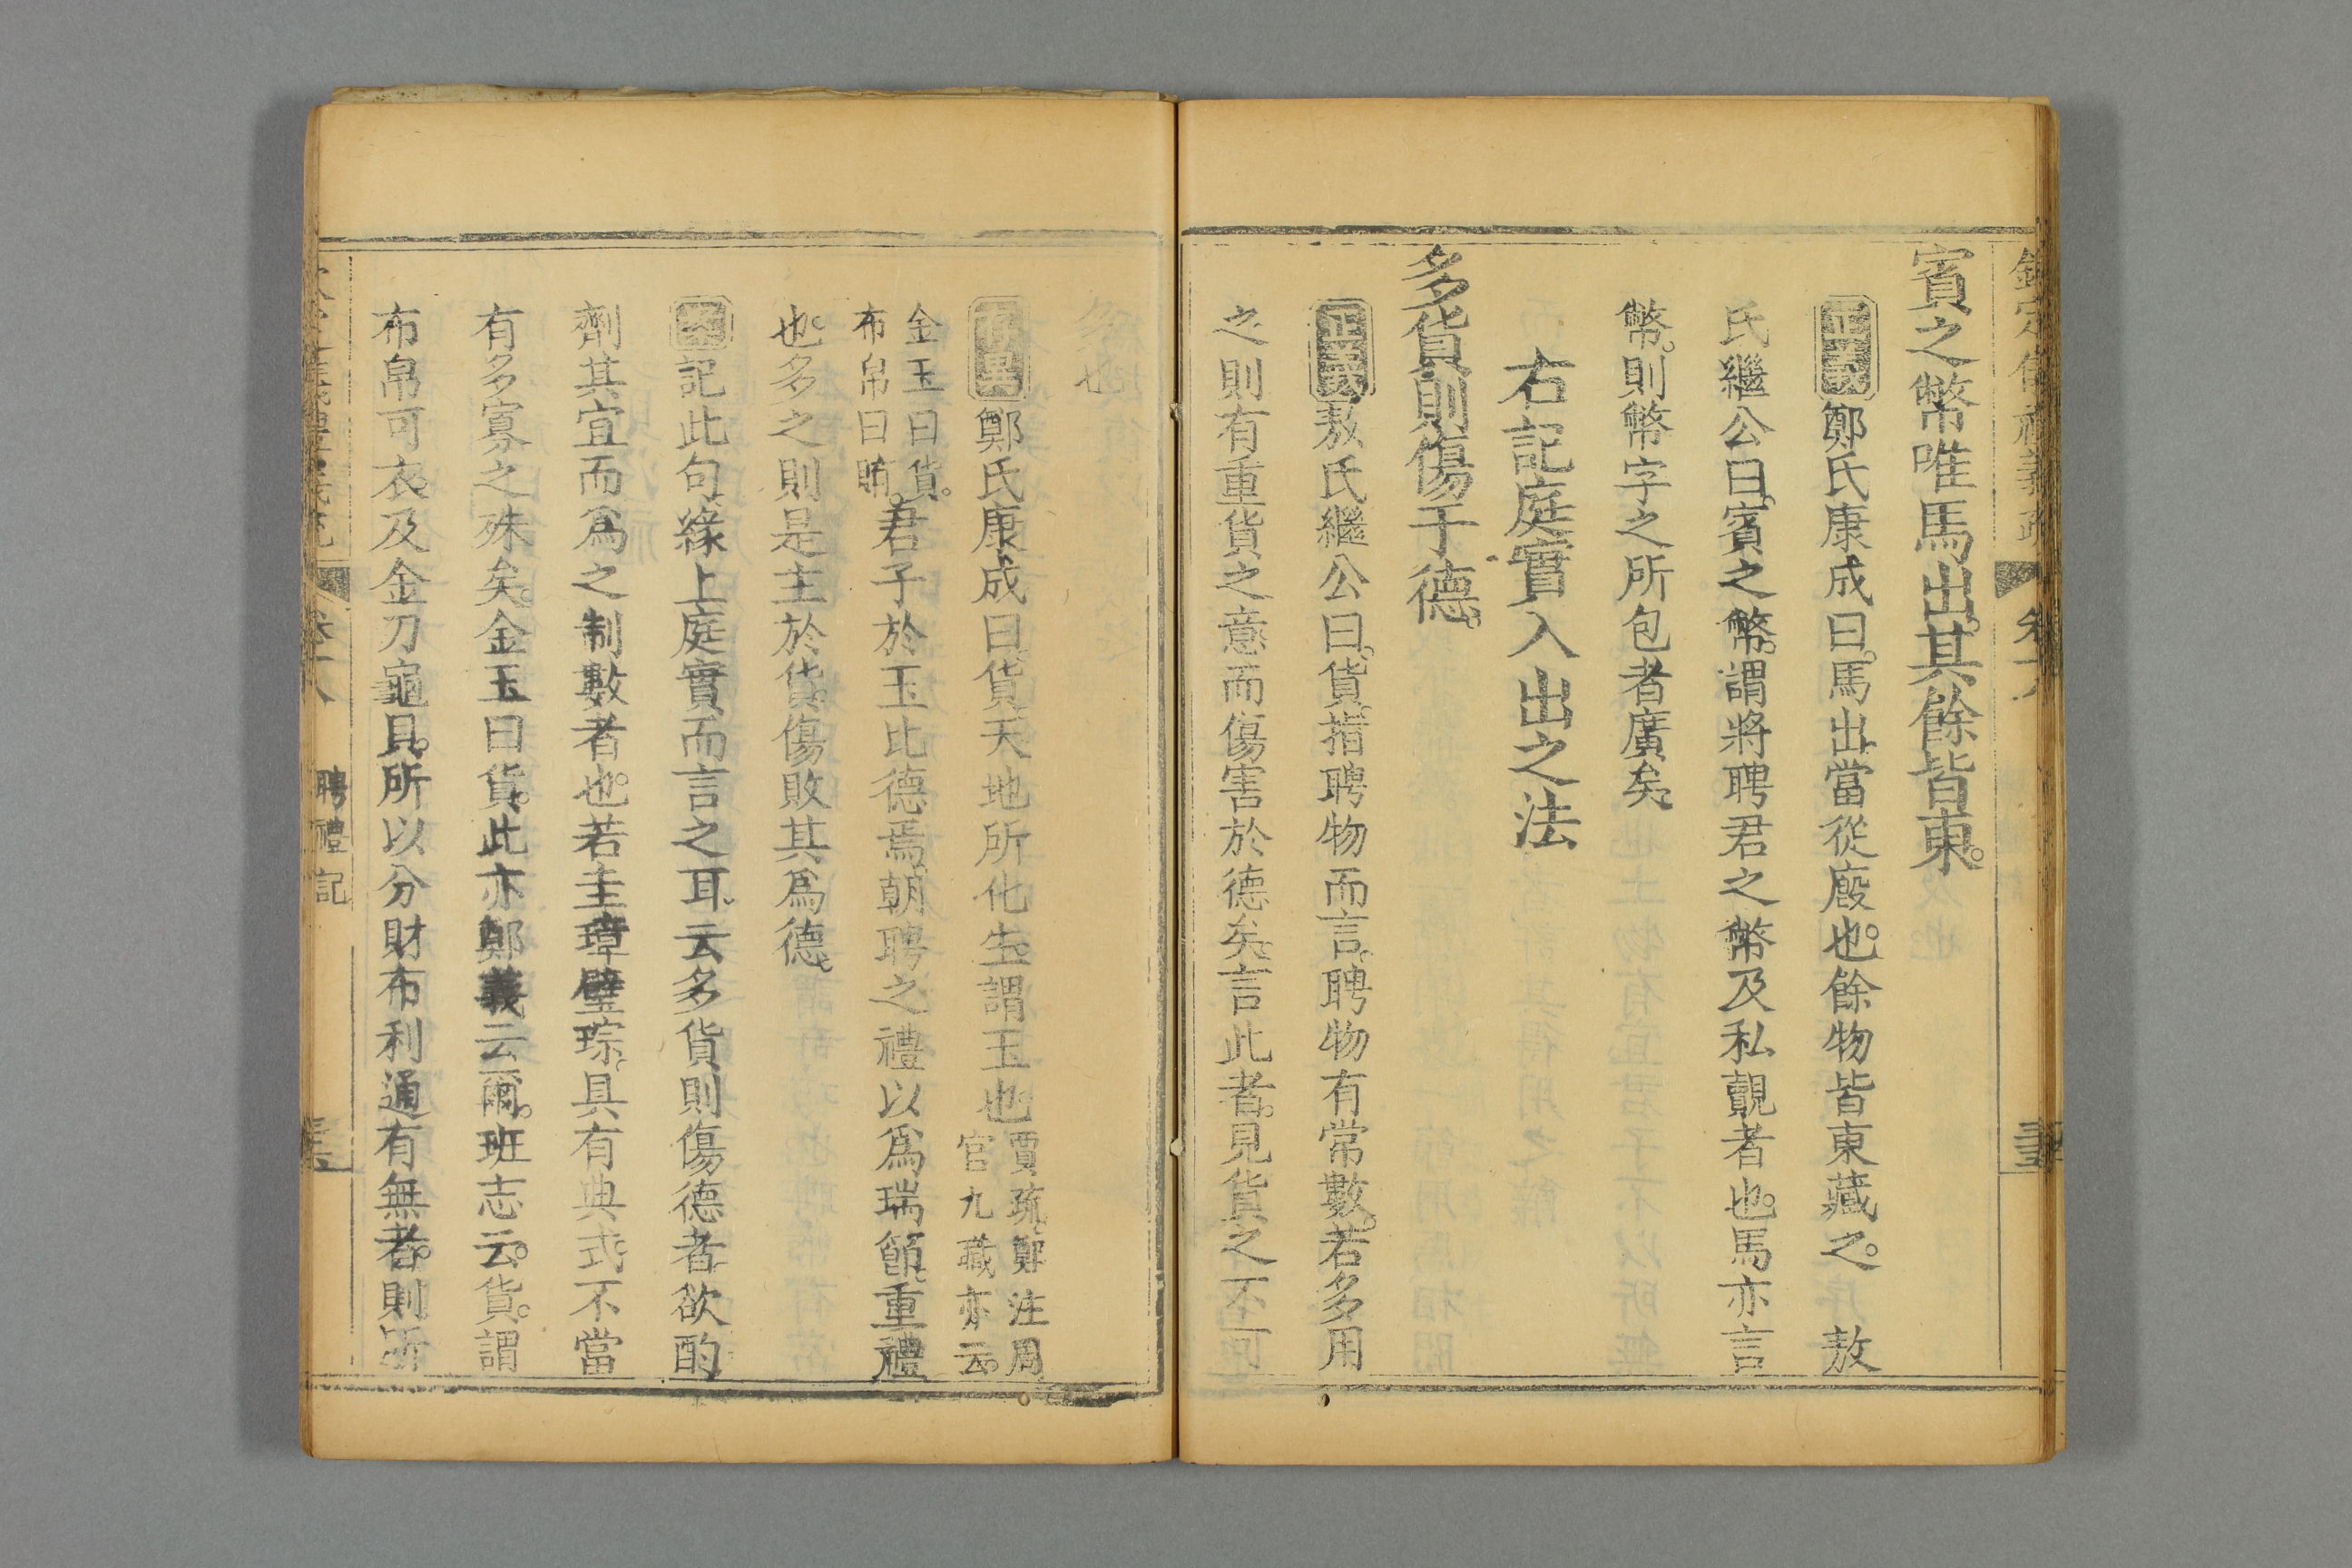 賓之幣唯馬出其餘皆東
正義鄭氏康成曰馬出當從廄也餘物皆東藏之 敖
氏繼公曰賓之幣謂將聘君之幣及私覿者也馬亦言
幣則幣字之所包者廣矣
右記庭實入出之法
多貨則傷于德
正義敖氏繼公曰貨指聘物而言聘物有常數若多用
之則有重貨之意而傷害於德矣言此者見貨之不可
多也
鄭氏康成曰貨天地所化生謂玉也
賈疏鄭注周
官九職亦云
金玉曰貨
布帛曰賄
君子於玉比德焉朝聘之禮以爲瑞節重禮
也多之則是主於貨傷敗其爲德
案記此句緣上庭實而言之耳云多貨則傷德者欲酌
劑其宜而爲之制數者也若圭璋璧琮具有典式不當
有多寡之殊矣金玉曰貨此亦鄭義云爾班志云貨謂
布帛可衣及金刀龜貝所以分財布利通有無者則所
聘禮記